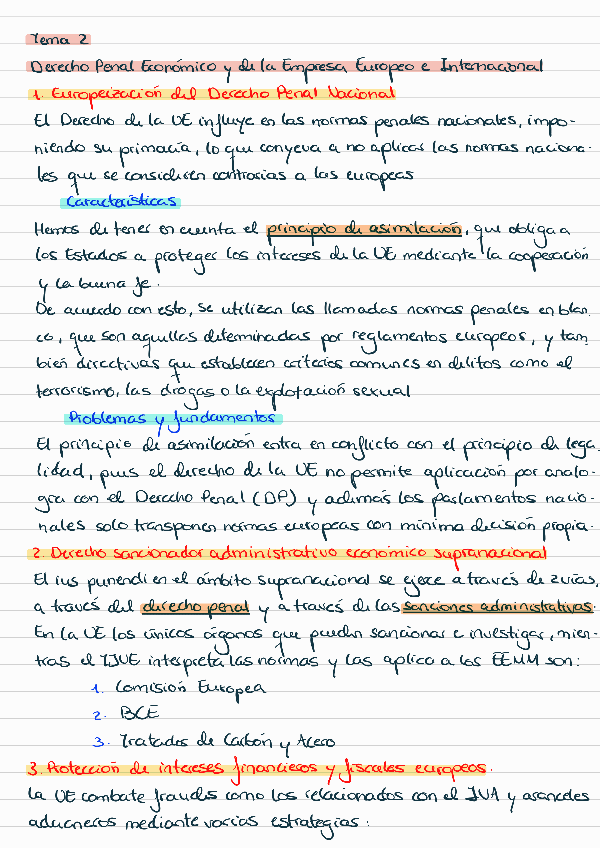 Tema 2
Derecho Penal Económico y de la Empresa Europeo e Internacional
1. Europeización del Derecho Penal Nacional
El Derecho de la UE influye en las normas penales nacionales, impo-
niendo su primacía, lo que conyeva a no aplicar las normas naciona-
les que se consideren contrarias a las europeas
Características
Hemos de tener en cuenta el principio de asimilación, que obliga a
los Estados a proteger los intereses de la UE mediante la cooperación
y la buena fe.
De acuerdo con esto, se utilizan las llamadas normas penales en blan
co, que son aquellas determinadas por reglamentos europeos, y tam
bién directivas que establecen criterios comunes en delitos como el
terrorismo, las drogas o la explotación sexual
Problemas y fundamentos
El principio de asimilación entra en conflicto con el principio de lega
lidad, pues el derecho de la UE no permite aplicación por analo-
gía con el Derecho Penal (DP) y además los parlamentos nacio-
nales solo transponen normas europeas con mínima decisión propia.
2. Derecho sancionador administrativo económico supranacional
El ius punendi en el ámbito supranacional se ejece a través de 2 vías,
a través del derecho penal y a través de las sanciones administrativas.
En la UE los únicos órganos que pueden sancionar e investigar, mien-
tras el TJUE interpreta las normas y las aplica a los EEMM son:
1. Comisión Europea
2. BCE
3. Tratados de Carbón y Acero
3. Protección de intereses financieros y fiscales europeos.
La UE combate fraudes como los relacionados con el IVA y aranceles
aduaneros mediante varias estrategias: